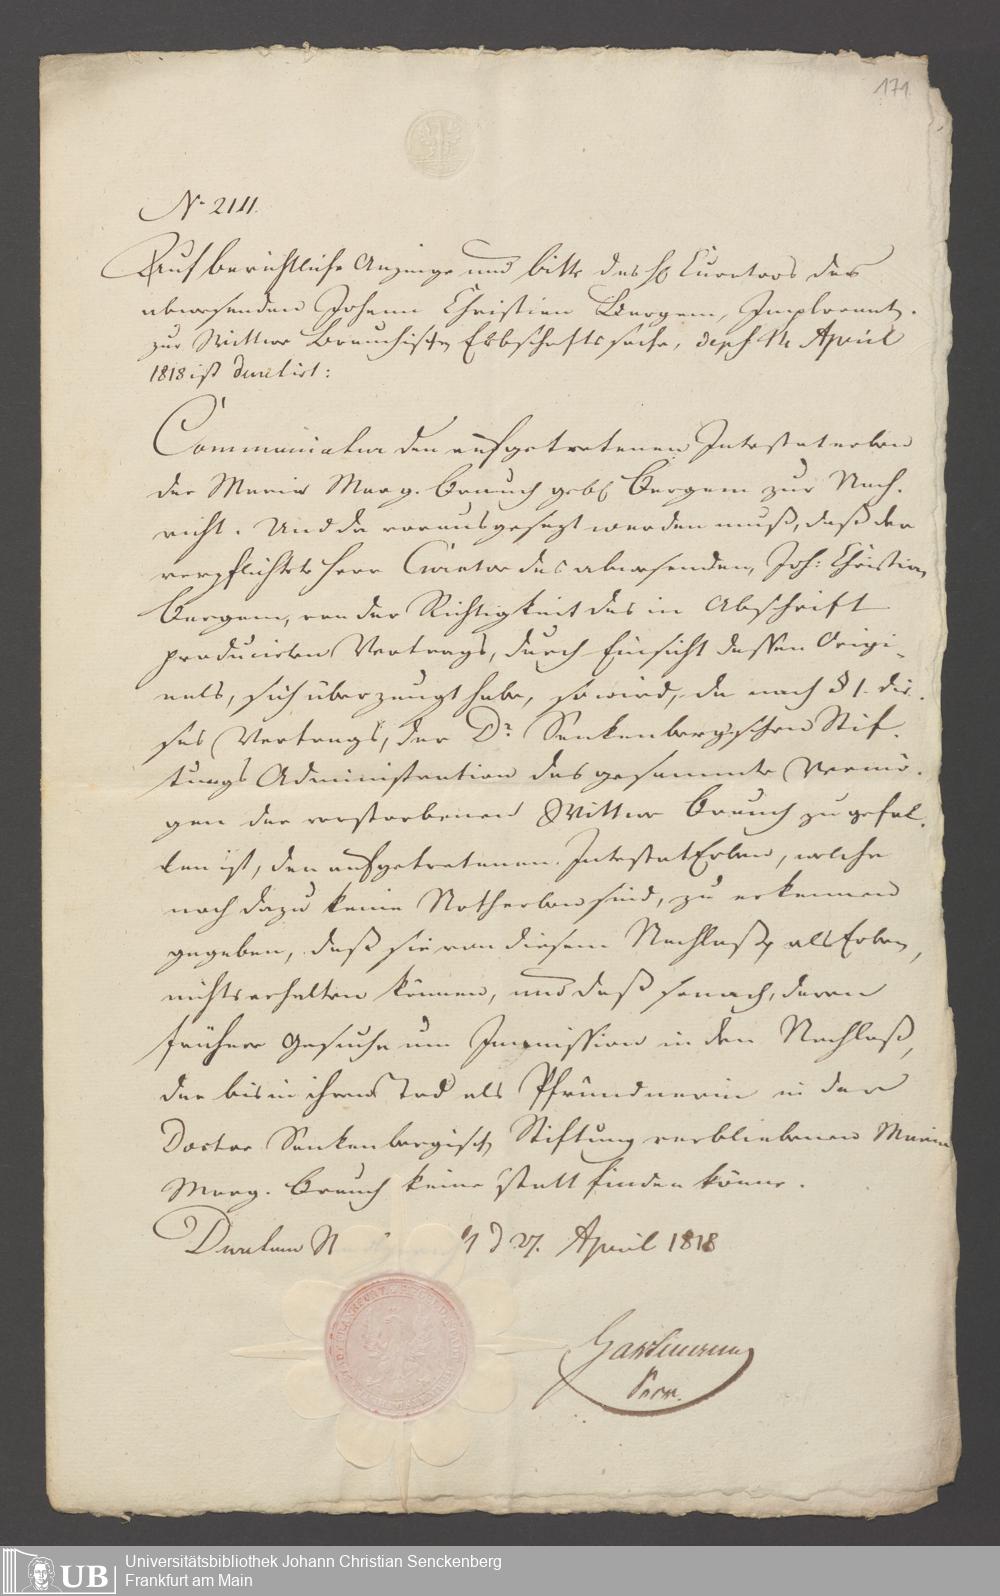 171.
No. 2111.
Auf berichtliche Anzeige und bitte des H. Curators des
abwesenden Johann Christian Bergem, Implorant.
zur Wittwe Brauchischen Erbschaftssache, 14 April
1818 ist decretirt:
Communicatur den aufgetretenen Intestaterben
der Maria Marg. Brauch geb. Bergem zur Nach-
richt. Und da vorausgesezt werden muß, daß der
verpflichtete Herr Curator des abwesenden, Joh: Christian
Bergem, von der Richtigkeit des in Abschrift
producirten Vertrags, durch Einsicht dessen Origi-
nals, sich überzeugt habe, so wird, da nach § 1. die-
ses Vertrags, der Dr. Senkenbergischen Stif-
tungs Administration das gesammte Vermö-
gen der verstorbenen Wittwe Brauch zugefal-
len ist, den aufgetretenen IntestatErben, welche
noch dazu keine Notherben sind, zu erkennen
gegeben, daß sie von diesem Nachlaß, als Erben,
nichts erhalten können, und daß sonach, deren
frühere Gesuche um Immission in den Nachlaß,
der bis in ihren Tod als Pfründnerin in der
Doctor Senkenbergisch Stiftung verbliebenen Maria
Marg. Brauch keine statt finden könne.
Decretum d 27. April 1818
Hartmann
Universitätsbibliothek Johann Christian Senckenberg
Frankfurt am Main
UB